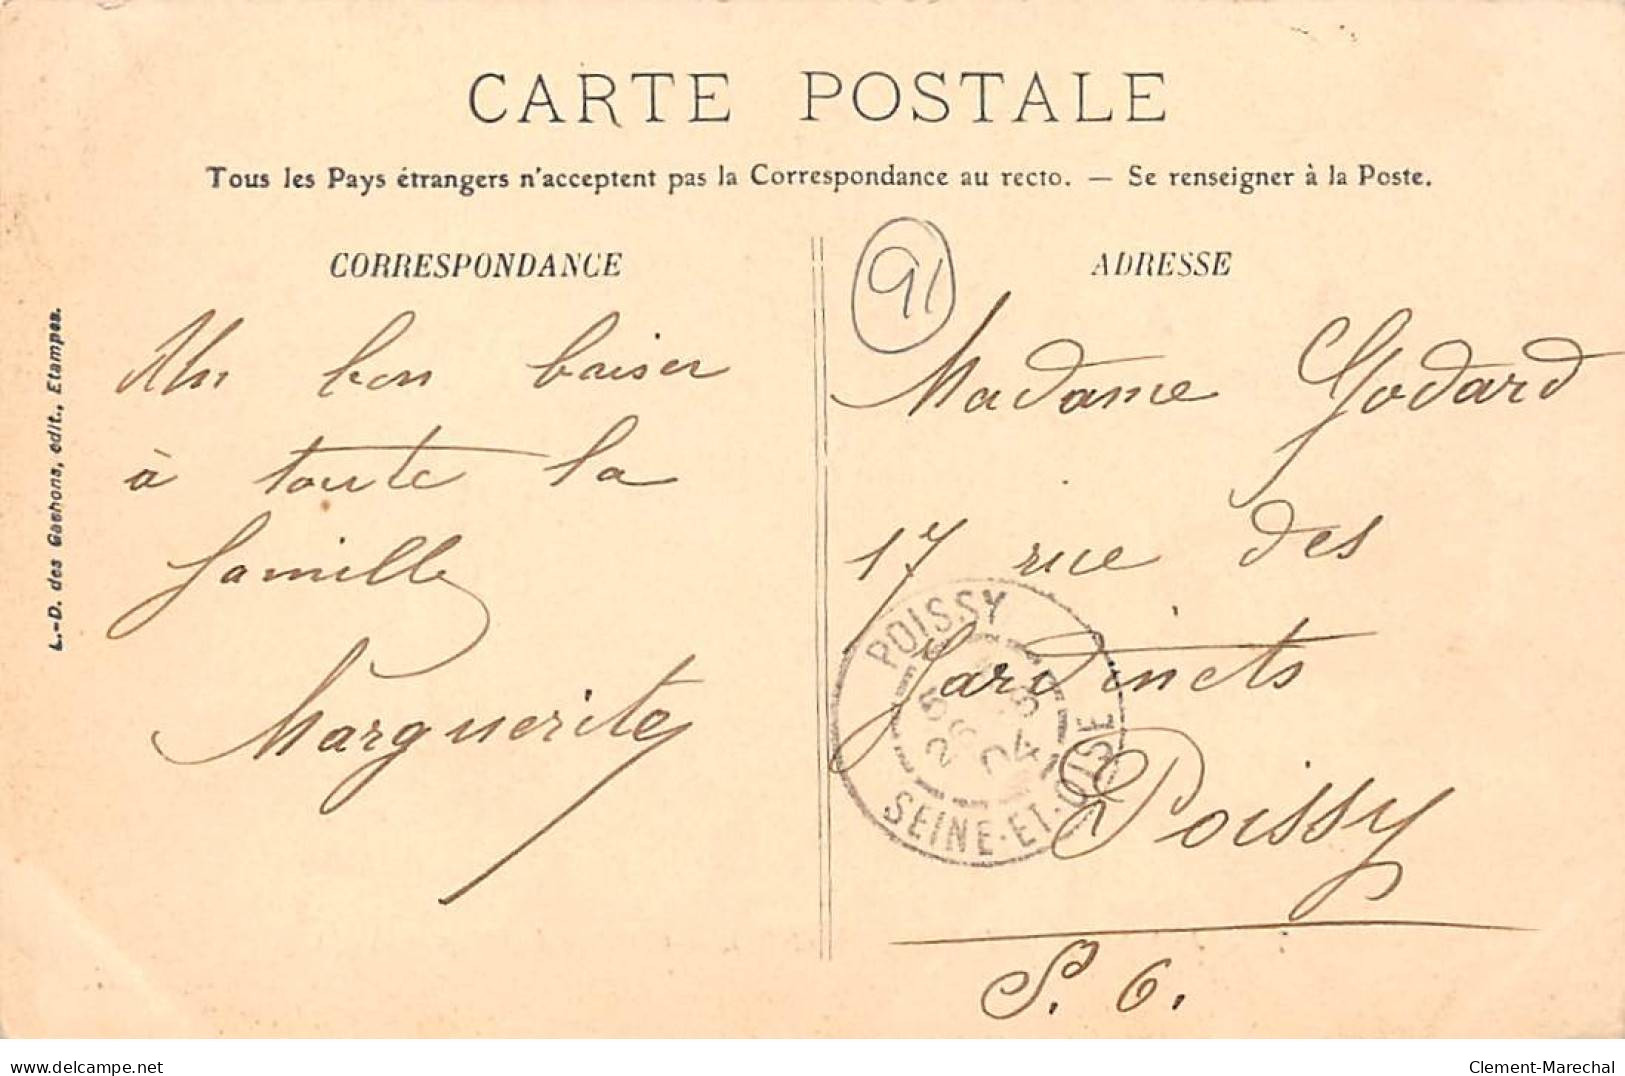 CARTE POSTALE
Tous les Pays étrangers n'acceptent pas la Correspondance au recto. — Se renseigner à la Poste.
CORRESPONDANCE
Un bon baiser
à toute la
famille
Marguerite
L.-D. des Gachons, édit., Etampes.
91
ADRESSE
Madame Godard
17 rue des
Jardinets
Poissy
S. O.
POISSY
26
04
SEINE-ET-OISE
delcampe.net
Clement-Marechal